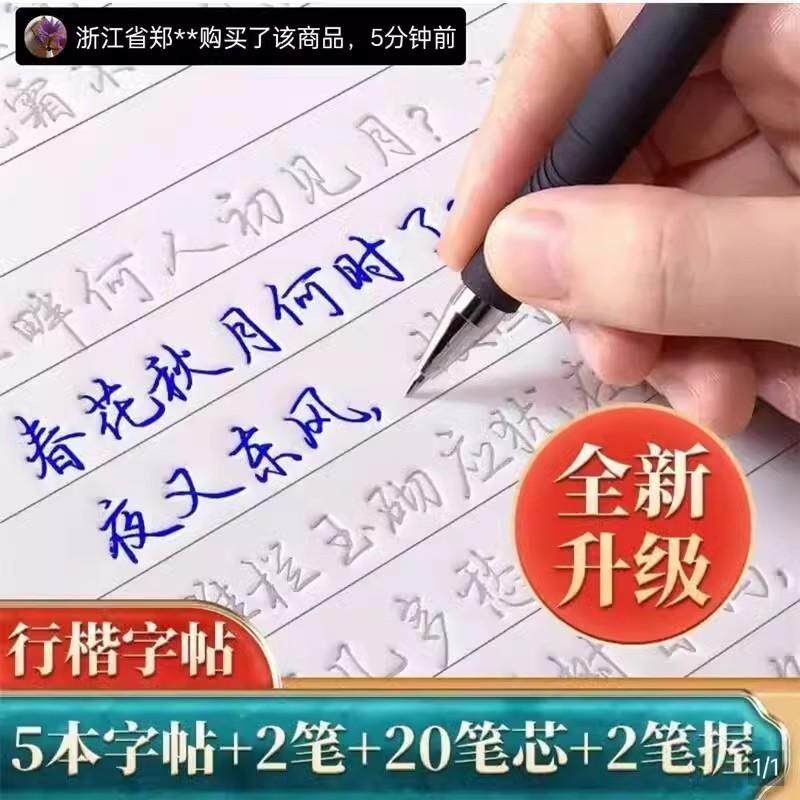 浙江省郑**购买了该商品，5分钟前
霜
畔何人初见月?
春花秋月何时了
夜又东风,
雕栏玉砌应犹在
几多愁
全新
升级
行楷字帖
5本字帖+2笔+20笔芯+2笔握
1/1